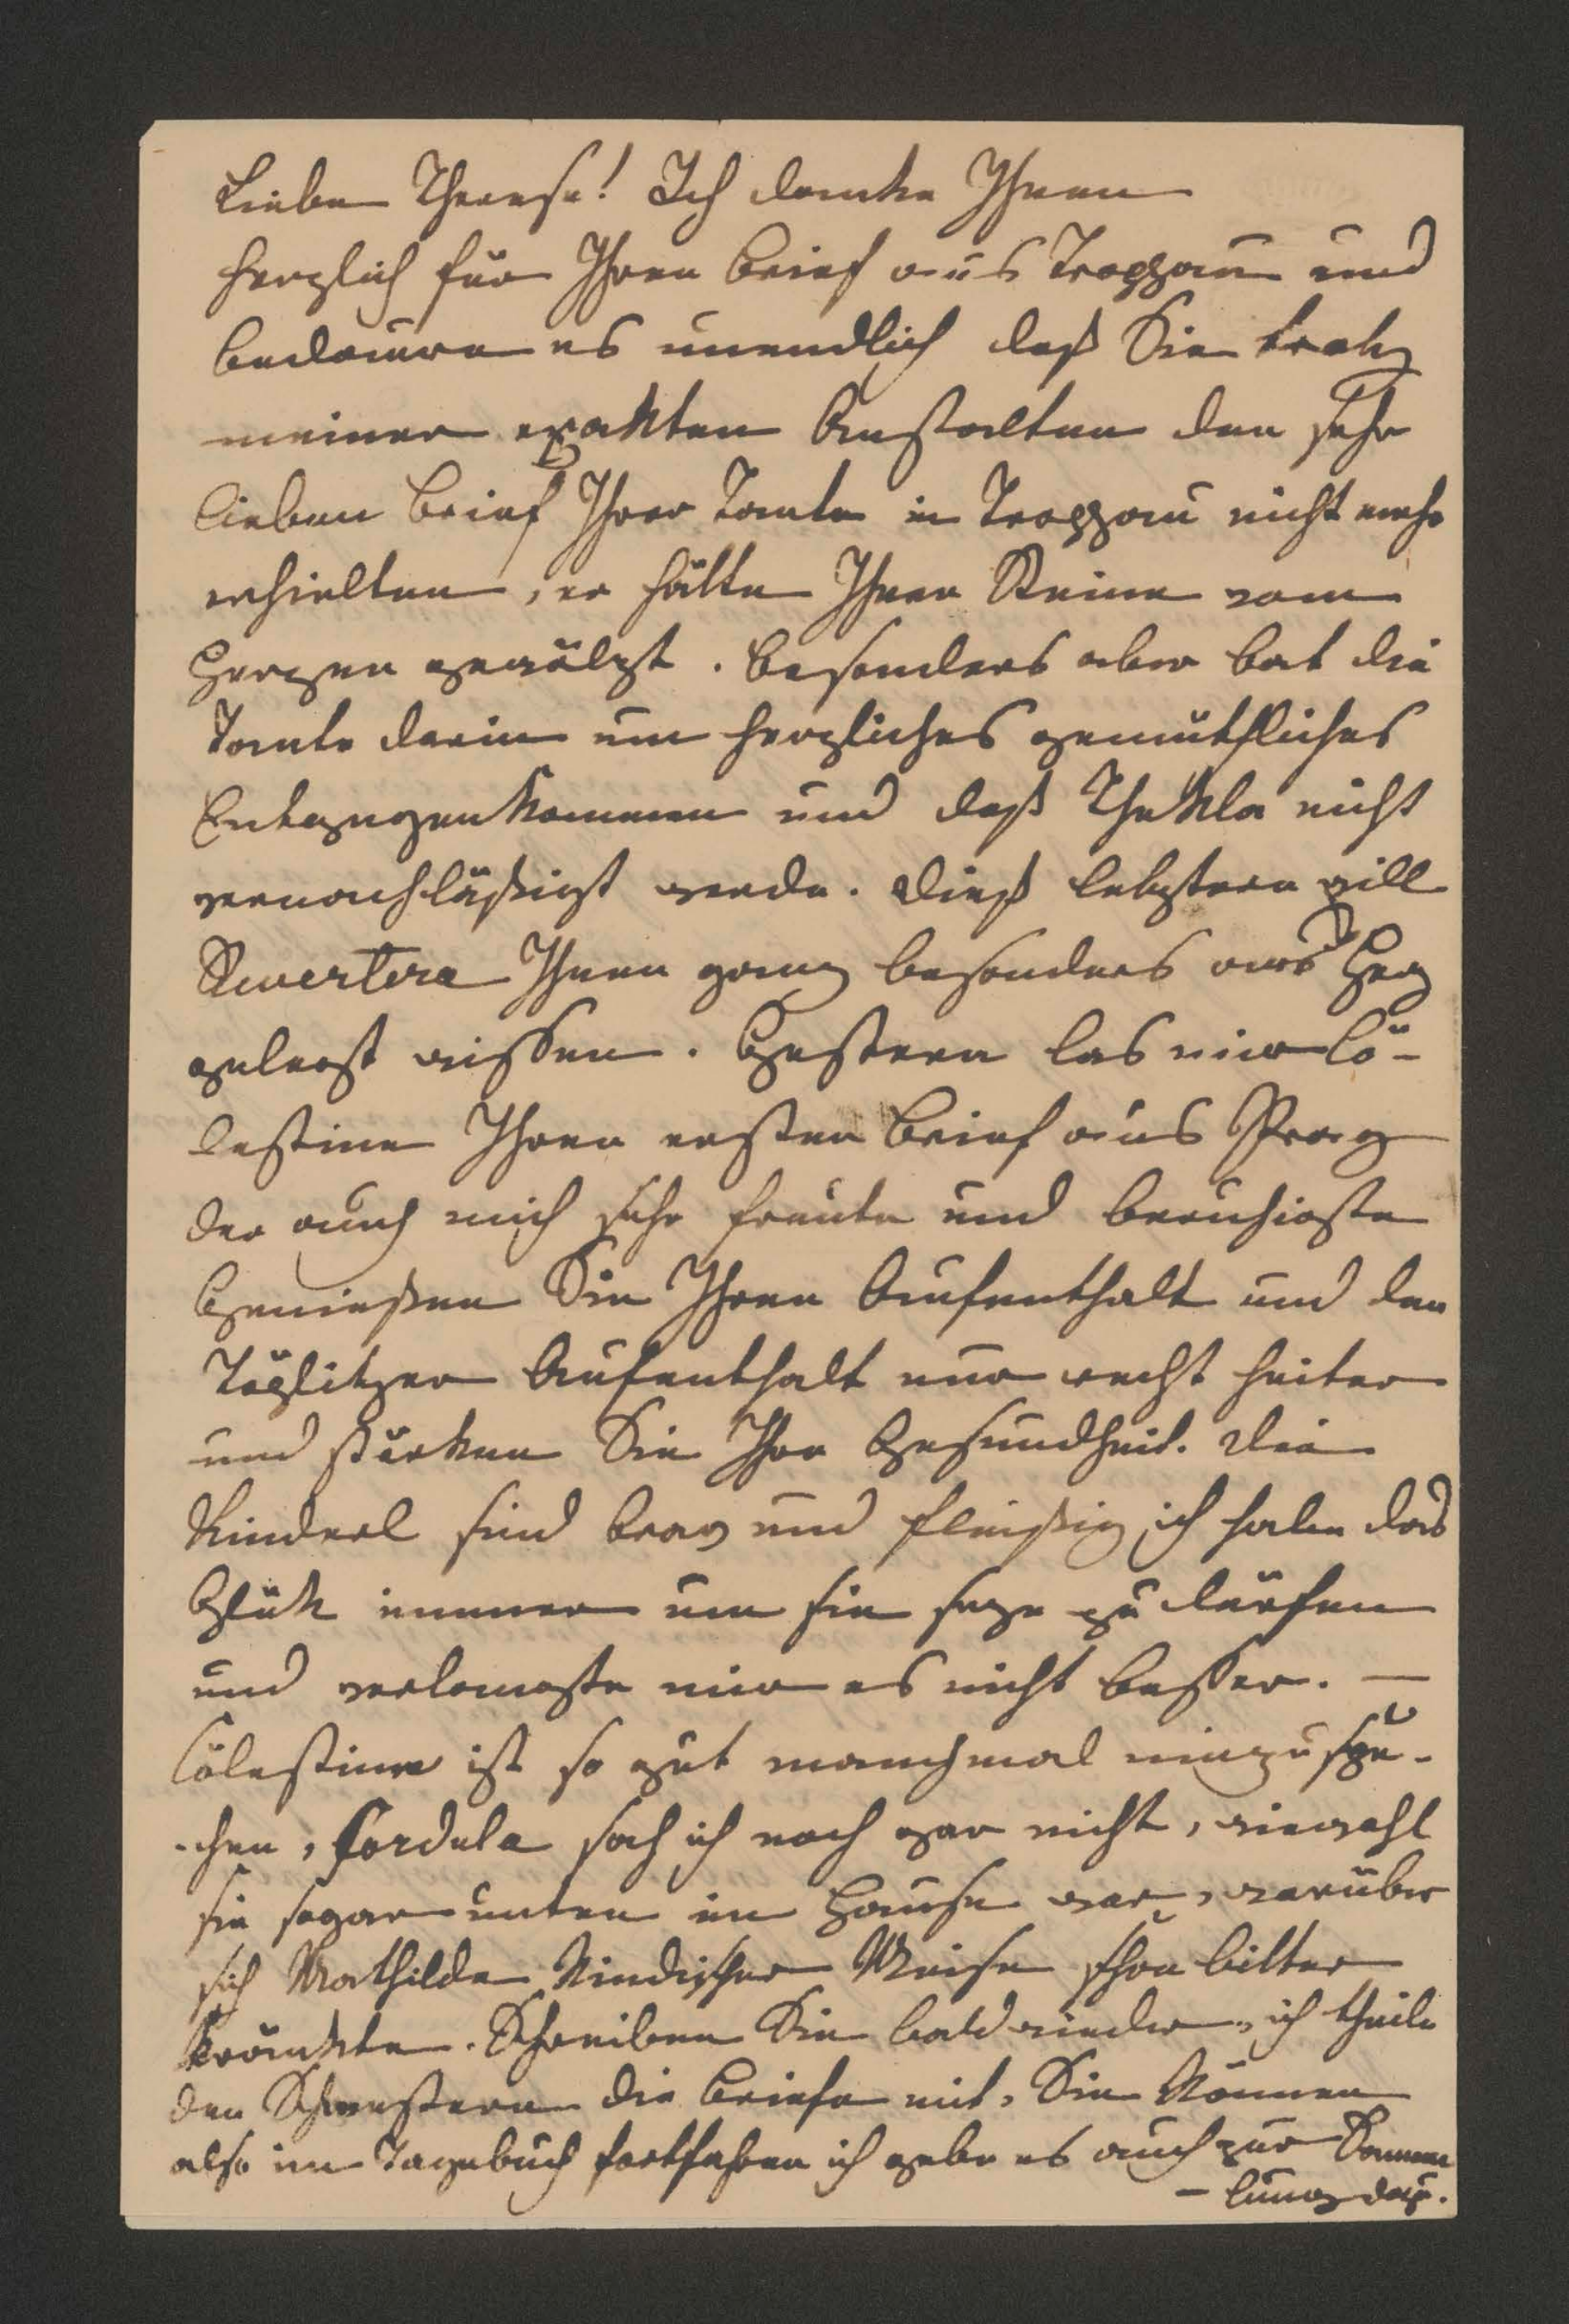 Liebe Therese! Ich danke Ihnen
herzlich für Ihren Brief aus Troppau und
bedaure es unendlich daß Sie trotz
meiner exakten Anstalten den sehr
lieben Brief Ihrer Tante in Troppau nicht mehr
erhielten, er hätte Ihnen Steine vom
Herzen gewälzt. Besonders aber bat die
Tante darin um herzliches gemüthliches
Entgegenkommen und daß Thekla nicht
vernachläßigt werde. Dieß letztere will
Revertera Ihnen ganz besonders ans Herz
gelegt wissen. Gestern las mir Cö-
lestine Ihren ersten Brief aus Prag
der auch mich sehr freute und beruhigte
Genießen Sie Ihren Aufenthalt und den
Töplitzer Aufenthalt nur recht heiter
und stärken Sie Ihre Gesundheit. Die
Kinderl sind brav und fleißig, ich habe das
Glük immer um sie seyn zu dürfen
und verlangte mir es nicht besser. —
Cölestine ist so gut manchmal
-chen, Cordula sah ich noch gar nicht, wiewohl
sie sogar unten im Hause war, worüber
sich Mathilde kindischer Weise schon bitter
kränkte. Schreiben Sie bald wieder, ich theile
den Schwestern die Briefe mit, Sie können
also im Tagebuch fortfahren ich gebe es auch zur Samm
-lung dazu.